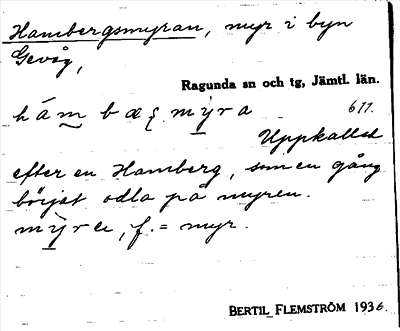 Hambergsmyran, myr i byn
Gevåg,
Ragunda sn och tg, Jämtl. län.
611.
Uppkallad
efter en Hamberg, som en gång
börjat odla på myren.
f. = myr.
BERTIL FLEMSTRÖM 1936.